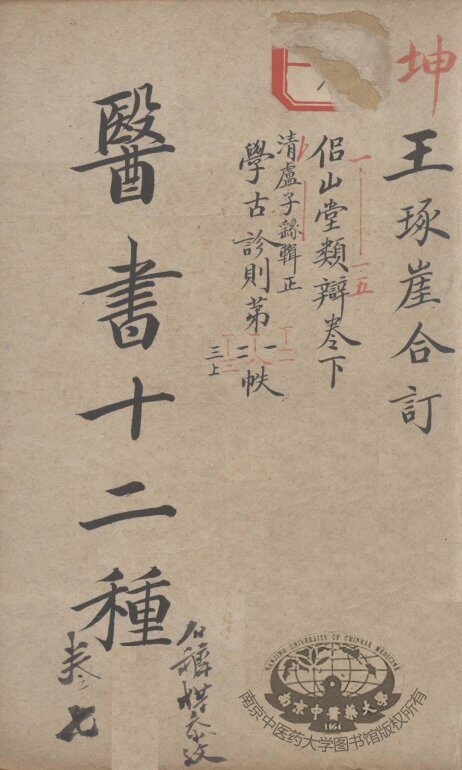 坤
王琢崖合訂
一
一五
侶山堂類辯卷下
清盧子繇輯正
學古診則第一二三上帙
十二
十八
醫書十二種
卷七
NANJING UNIVERSITY OF CHINESE MEDICINE
南京中醫藥大學
1954
南京中医药大学图书馆版权所有